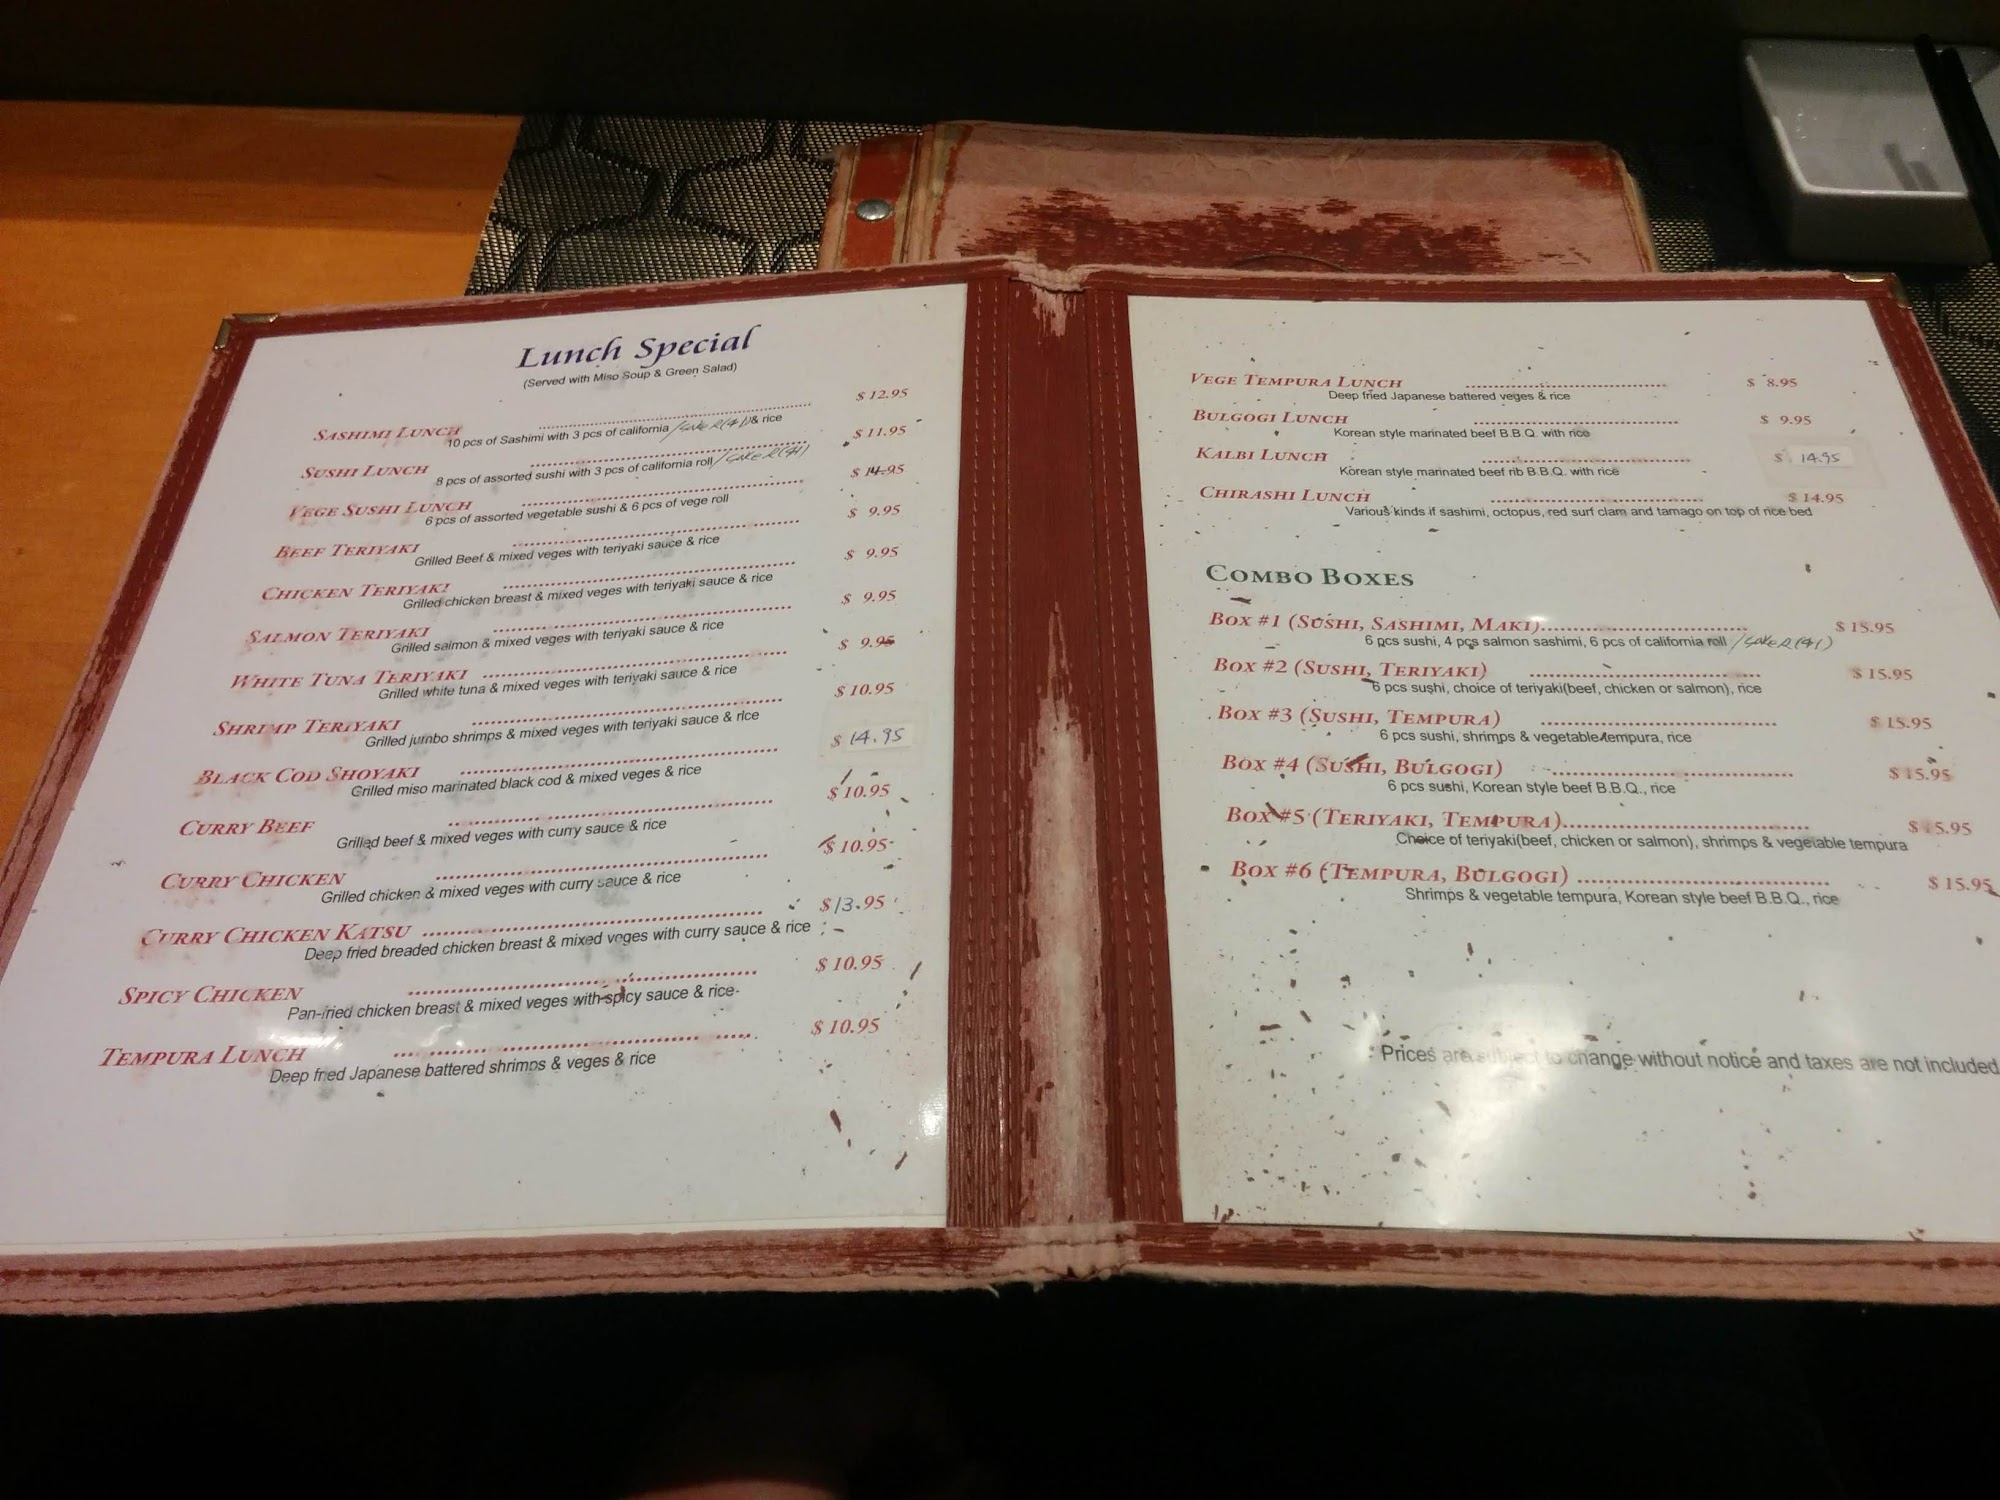 Lunch Special
(Served with Miso Soup & Green Salad)
SASHIMI LUNCH ........ $ 12.95
10 pcs of Sashimi with 3 pcs of california & rice
SUSHI LUNCH ........ $ 11.95
8 pcs of assorted sushi with 3 pcs of california roll
VEGE SUSHI LUNCH ........ $
6 pcs of assorted vegetable sushi & 6 pcs of vege roll
BEEF TERIYAKI ........ $ 9.95
Grilled Beef & mixed veges with teriyaki sauce & rice
CHICKEN TERIYAKI ........ $ 9.95
Grilled chicken breast & mixed veges with teriyaki sauce & rice
SALMON TERIYAKI ........ $ 9.95
Grilled salmon & mixed veges with teriyaki sauce & rice
WHITE TUNA TERIYAKI ........ $ 9.95
Grilled white tuna & mixed veges with teriyaki sauce & rice
SHRIMP TERIYAKI ........ $ 10.95
Grilled jumbo shrimps & mixed veges with teriyaki sauce & rice
BLACK COD SHOYAKI ........ $ 14.95
Grilled miso marinated black cod & mixed veges & rice
CURRY BEEF ........ $ 10.95
Grilled beef & mixed veges with curry sauce & rice
CURRY CHICKEN ........ $ 10.95
Grilled chicken & mixed veges with curry sauce & rice
CURRY CHICKEN KATSU ........ $ 13.95
Deep fried breaded chicken breast & mixed veges with curry sauce & rice
SPICY CHICKEN ........ $ 10.95
Pan-fried chicken breast & mixed veges with spicy sauce & rice
TEMPURA LUNCH ........ $ 10.95
Deep fried Japanese battered shrimps & veges & rice
VEGE TEMPURA LUNCH ........ $ 8.95
Deep fried Japanese battered veges & rice
BULGOGI LUNCH ........ $ 9.95
Korean style marinated beef B.B.Q. with rice
KALBI LUNCH ........ $ 14.95
Korean style marinated beef rib B.B.Q. with rice
CHIRASHI LUNCH ........ $ 14.95
Various kinds if sashimi, octopus, red surf clam and tamago on top of rice bed
COMBO BOXES
BOX #1 (SUSHI, SASHIMI, MAKI)........ $ 15.95
6 pcs sushi, 4 pcs salmon sashimi, 6 pcs of california roll
BOX #2 (SUSHI, TERIYAKI) ........ $ 15.95
6 pcs sushi, choice of teriyaki(beef, chicken or salmon), rice
BOX #3 (SUSHI, TEMPURA) ........ $ 15.95
6 pcs sushi, shrimps & vegetable tempura, rice
BOX #4 (SUSHI, BULGOGI) ........ $ 15.95
6 pcs sushi, Korean style beef B.B.Q., rice
BOX #5 (TERIYAKI, TEMPURA)........ $ 15.95
Choice of teriyaki(beef, chicken or salmon), shrimps & vegetable tempura
BOX #6 (TEMPURA, BULGOGI) ........ $ 15.95
Shrimps & vegetable tempura, Korean style beef B.B.Q., rice
* Prices are subject to change without notice and taxes are not included